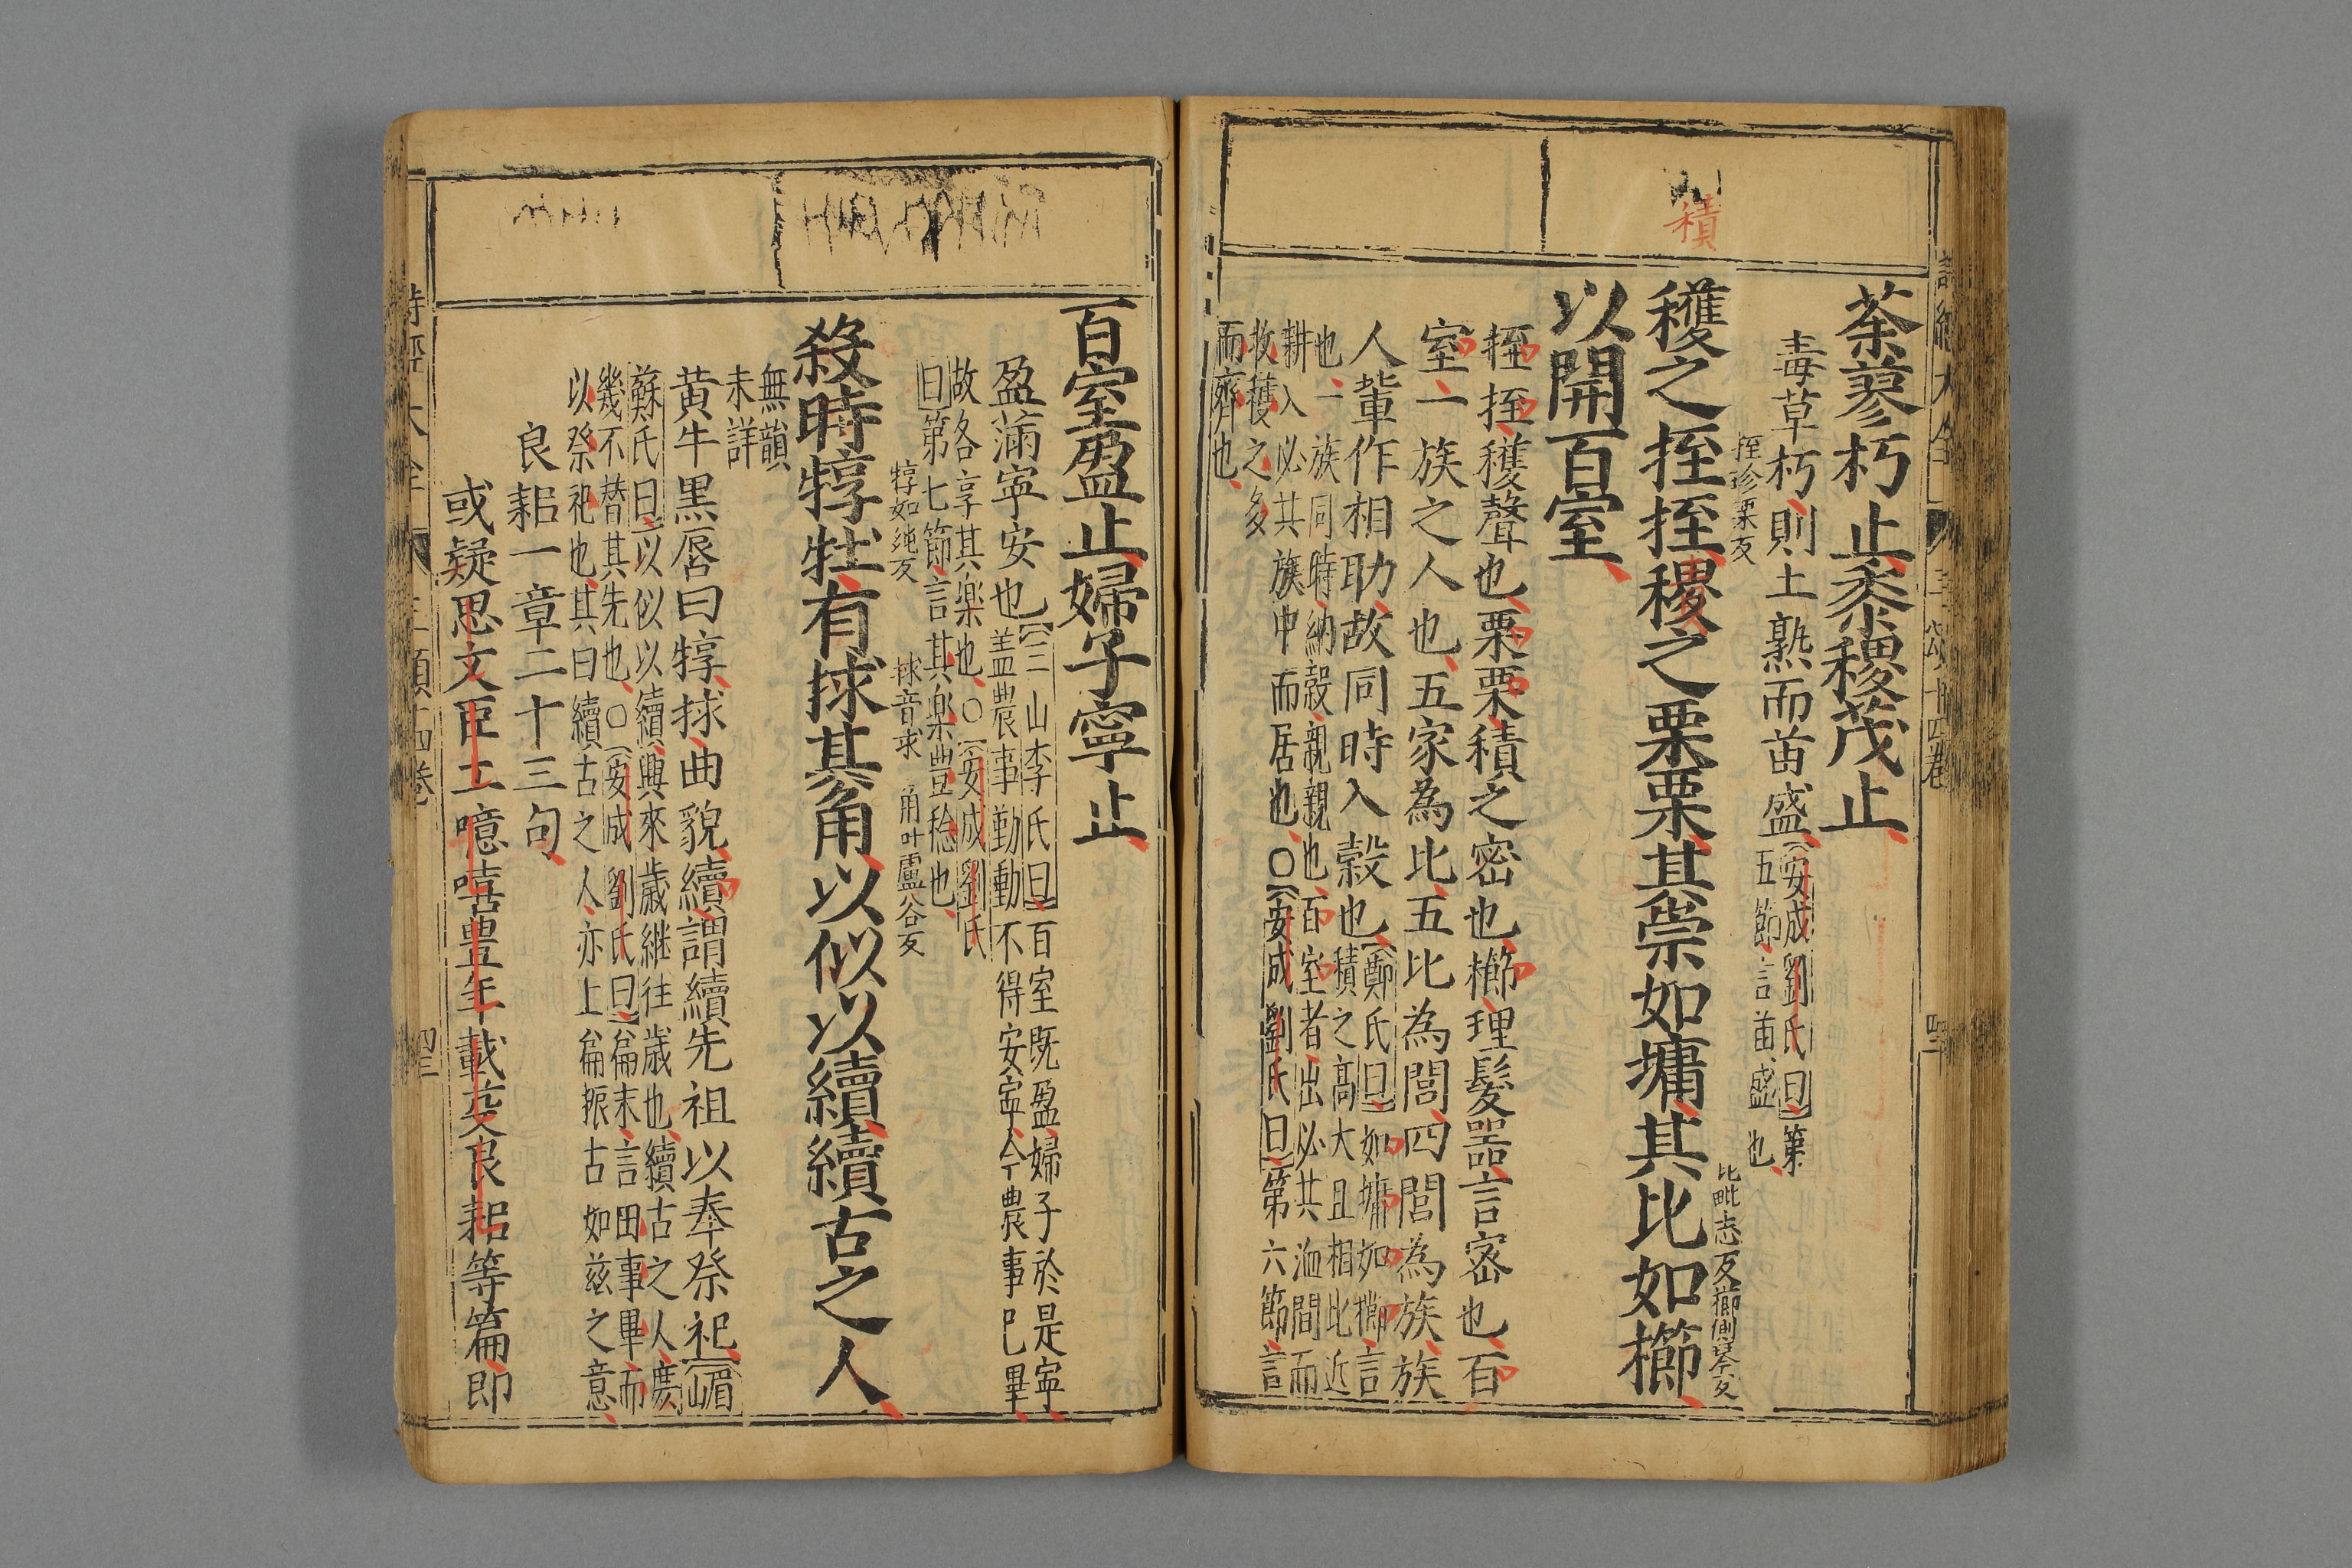 積
荼蓼朽止黍稷茂止
毒草朽則土熟而苗盛
安成劉氏曰第
五節言苗盛也
挃珍栗反
穫之挃挃稷之栗栗其崇如墉其比如櫛
比毗志反櫛側瑟反
以開百室
挃挃穫聲也栗栗積之密也櫛理髮器言密也百
室一族之人也五家為比五比為閭四閭為族族
人輩作相助故同時入穀也
鄭氏曰如墉如櫛言
積之高大且相比近
也一族同時納穀親親也百室者出必共洫間而
耕入必共族中而居也○安成劉氏曰第六節言
收穫之多
而齊也
百室盈止婦子寧止
盈滿寧安也
三山李氏曰百室既盈婦子於是寧
蓋農事勤動不得安寧今農事已畢
故各享其樂也○安成劉氏
曰第七節言其樂豊稔也
犉如純反 捄音求 角叶盧谷反
殺時犉牡有捄其角以似以續續古之人
無韻
未詳
黄牛黒唇曰犉捄曲貌續謂續先祖以奉祭祀
嵋
蘇氏曰以似以續與來歲継往歲也續古之人庶
幾不替其先也○安成劉氏曰篇末言田事畢而
以祭祀也其曰續古之人亦上篇振古如兹之意
良耜一章二十三句
或疑思文臣工噫嘻豊年載芟良耜等篇即